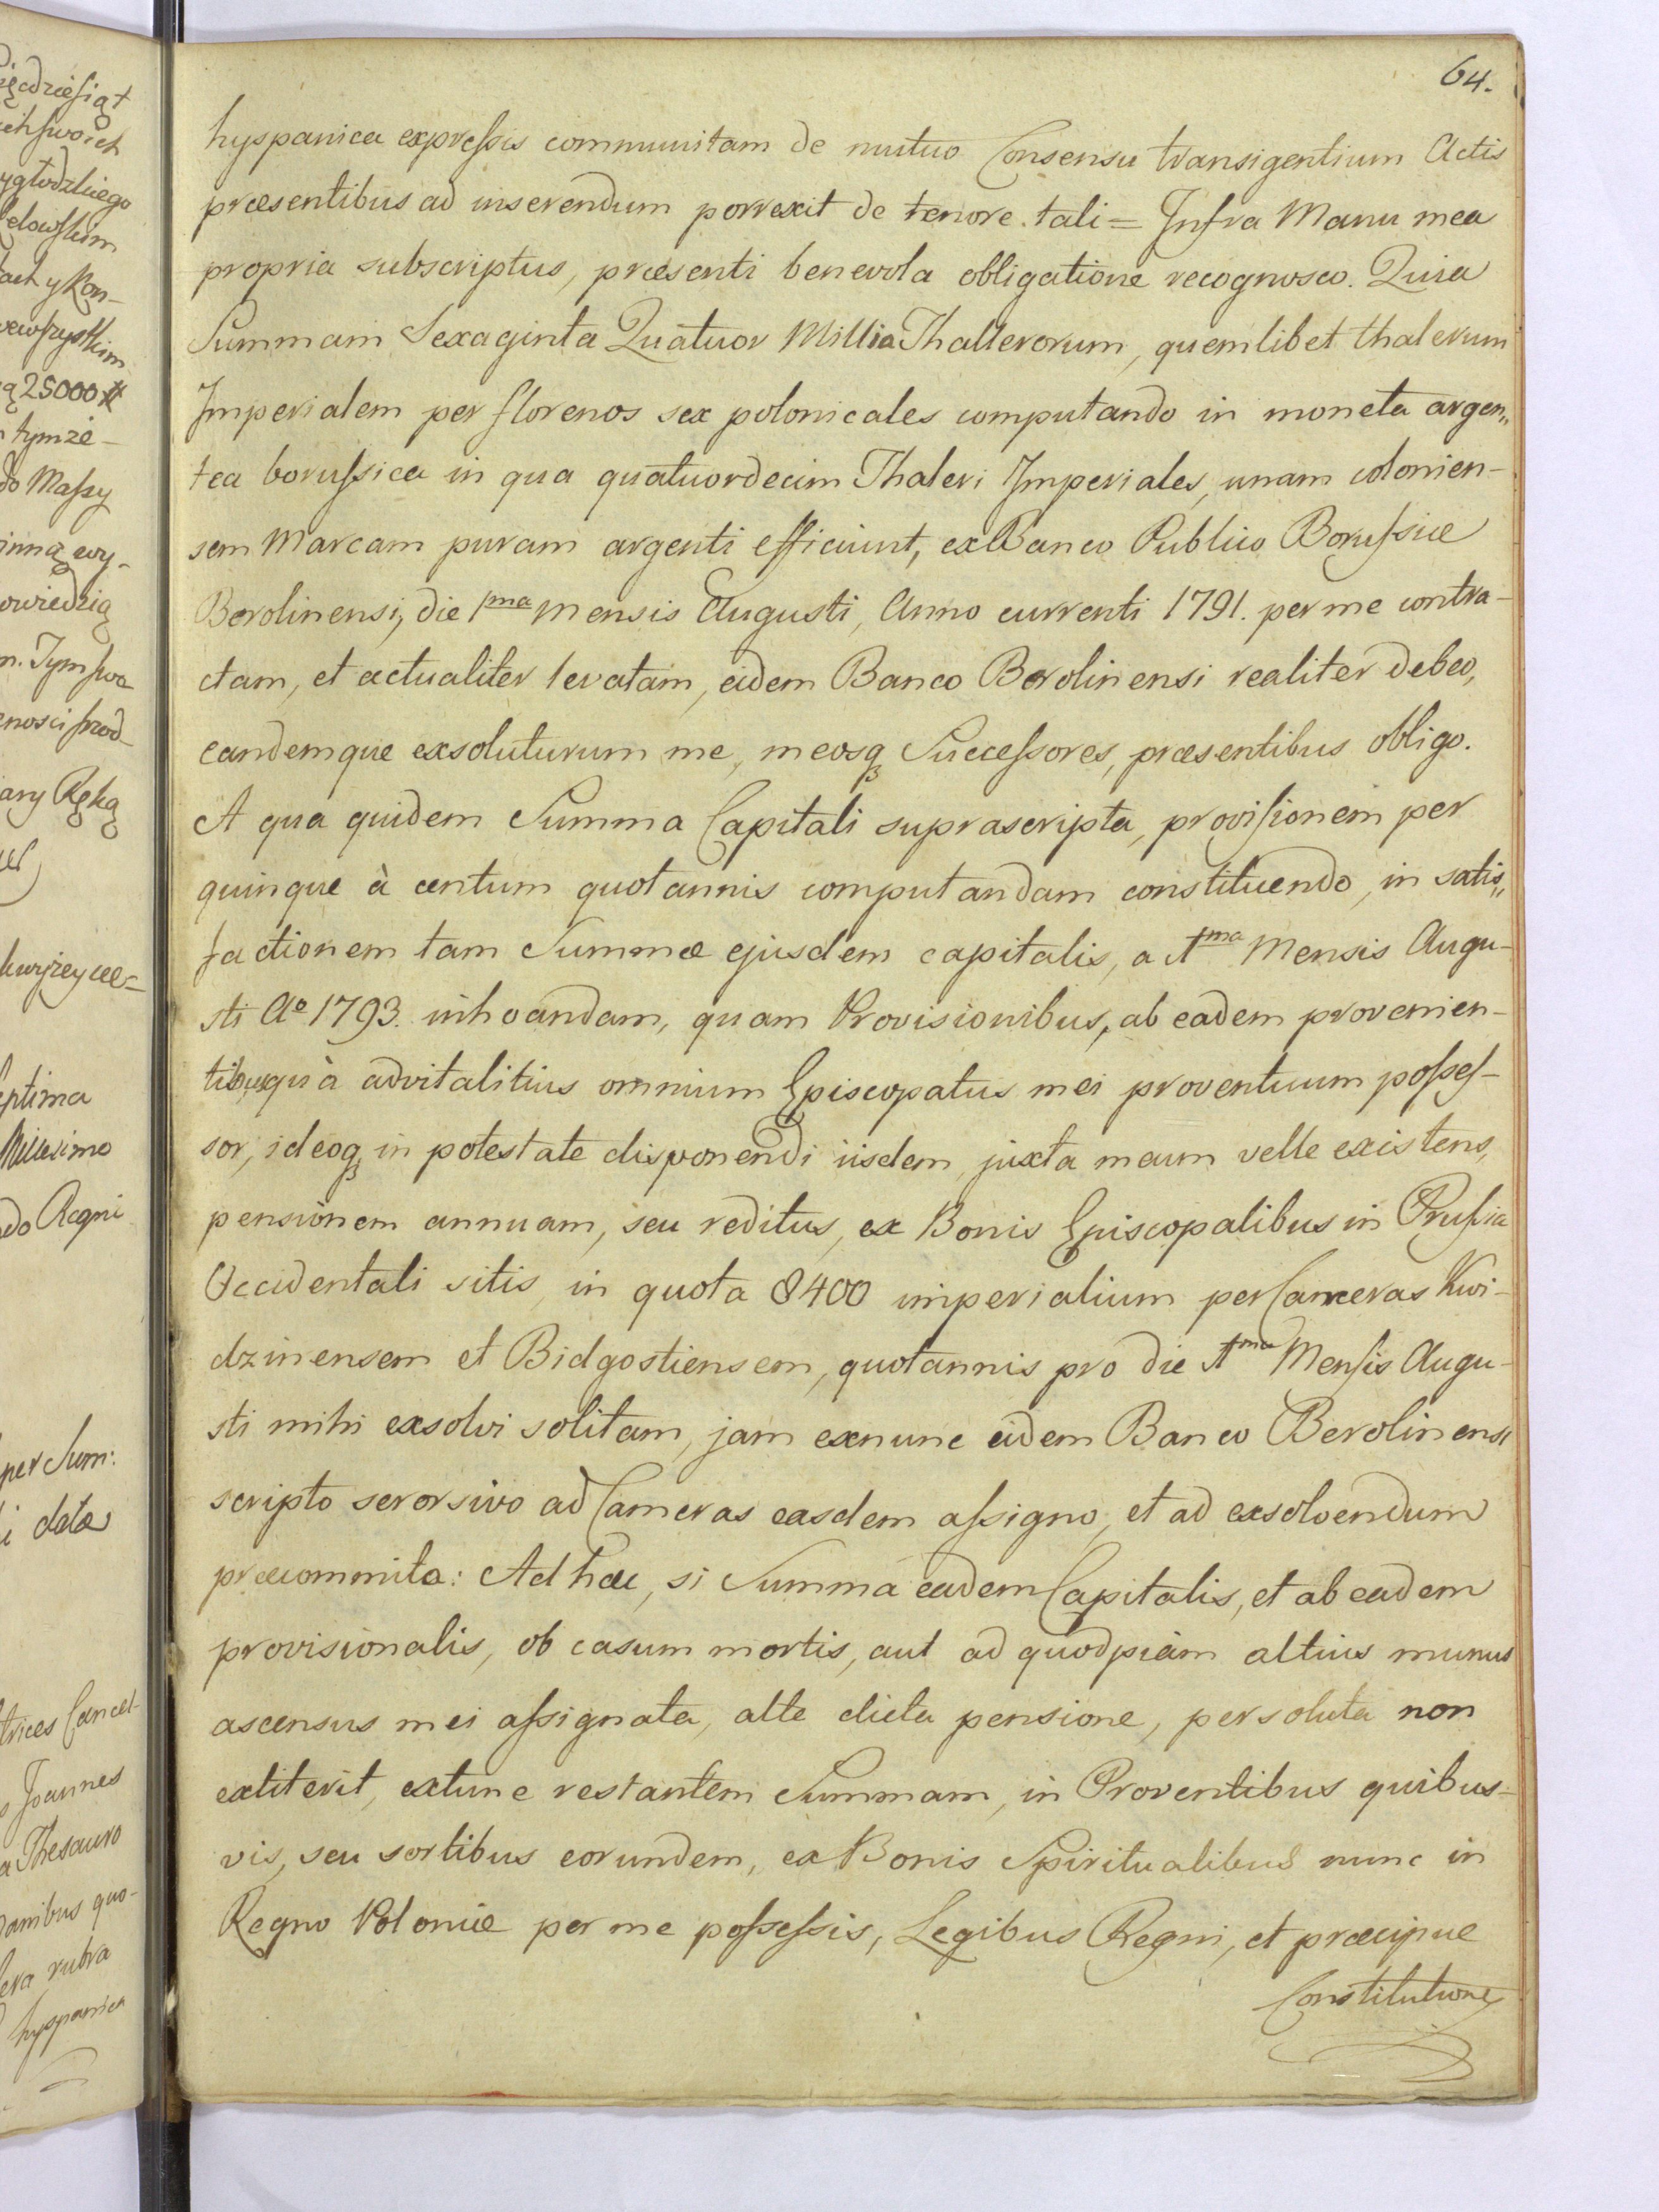 64.
hyspanica expressis communitam de mutuo Consensu transigentium Actis
præsentibus ad inserendum porrexit de tenore tali = Infra Manu mea
propria subscriptus, præsenti benevola obligatione recognosco. Quia
Summam Sexaginta Quatuor Millia Thallerorum, quemlibet thalerum
Imperialem per florenos sex polonicales computando in moneta argen„
tea borussica in qua quatuordecim Thaleri Imperiales, unam colonien-
sem Marcam puram argenti efficiunt, ex Banco Publico Borussiæ
Berolinensi, die 1ma mensis Augusti, Anno currenti 1791. per me contra-
ctam, et actualiter levatam, eidem Banco Berolinensi realiter debeo,
eandemque exsoluturum me, meosq3 Successores, præsentibus obligo.
A qua quidem Summa Capitali suprascripta, provisionem per
quinque à centum quotannis computandam constituendo, in satis„
factionem tam Summæ ejusdem capitalis, a 1ma Mensis Augu-
sti Ao 1793. inhoandam, quam Provisionibus, ab eadem provenien-
tibus, quà advitalitius omnium Episcopatus mei proventuum posses-
sor, ideoq3 in potestate disponendi iisdem, juxta meum velle existens,
pensionem annuam, seu reditus, ex Bonis Episcopalibus in Prussia
Occidentali sitis, in quota 8400 imperialium per Cameras Kwi-
dzinensem et Bidgostiensem, quotannis pro die 1ma Mensis Augu-
sti mihi exsolvi solitam, jam exnunc eidem Banco Berolinensi
scripto serorsivo ad Cameras easdem assigno, et ad exsolvendum
præcommito: Ad hæc, si Summa eadem Capitalis, et ab eadem
provisionalis, ob casum mortis, aut ad quodpiam altius munus
ascensus mei assignata, alte dicta pensione, persoluta non
extiterit, extunc restantem Summam, in Proventibus quibus-
vis, seu sortibus eorundem, ex Bonis Spiritualibus nunc in
Regno Poloniæ per me possessis, Legibus Regni, et præcipue
Constitutione